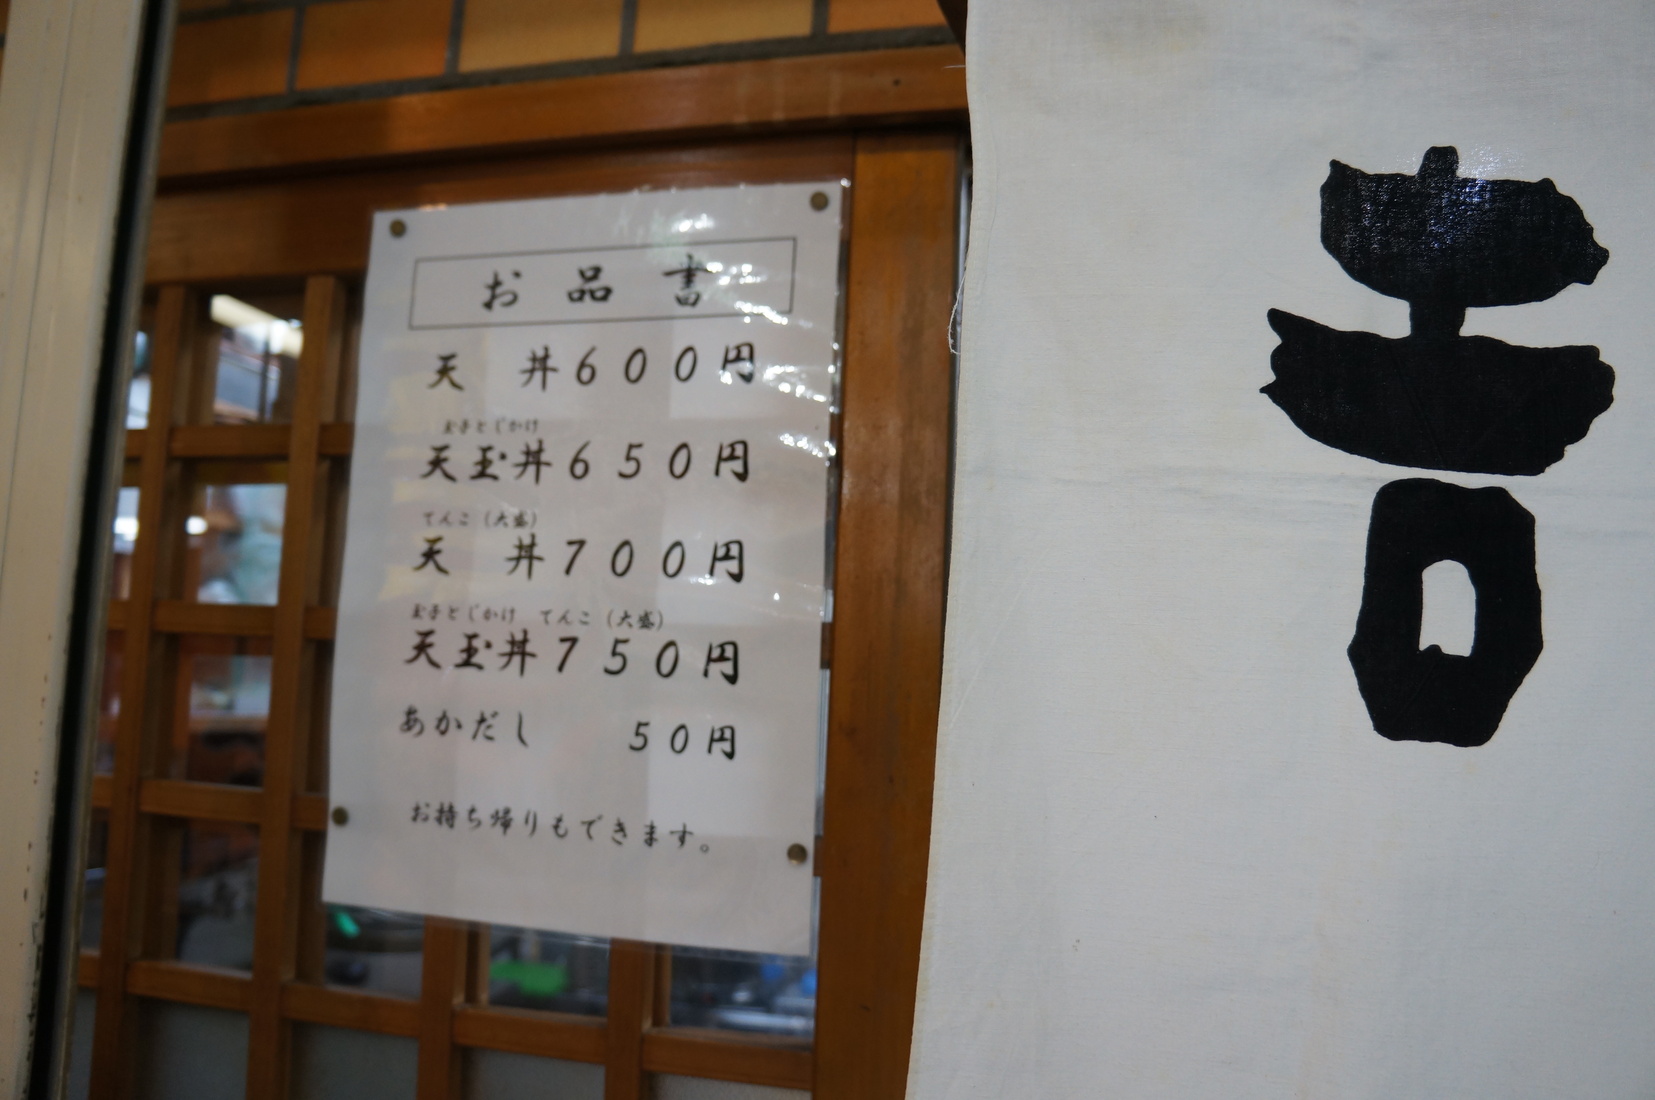 お品書
天 丼600円
玉子とじかけ
天玉丼650円
てんこ(大盛)
天 丼700円
玉子とじかけ てんこ(大盛)
天玉丼750円
あかだし 50円
お持ち帰りもできます。
吉